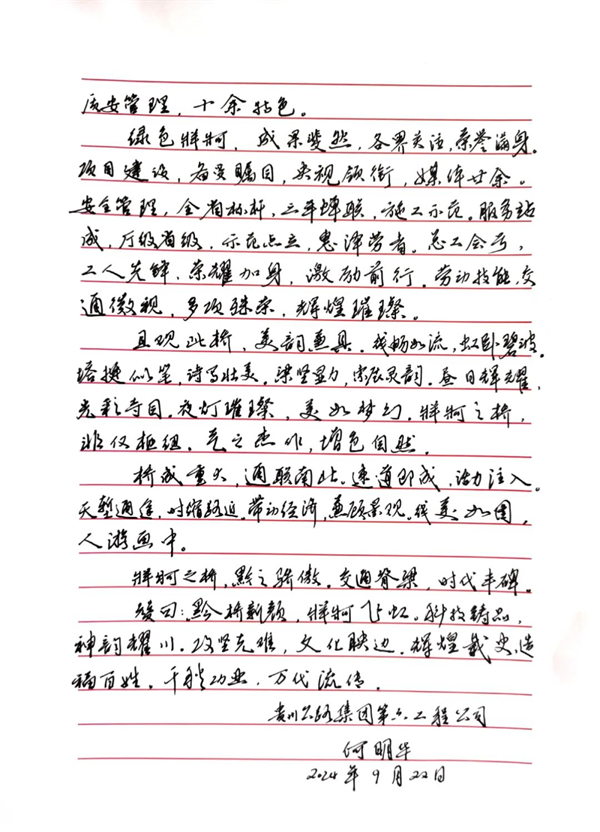 质安管理，十余特色。
绿色牂牁，成果斐然，各界关注，荣誉满身。
项目建设，备受瞩目，央视领衔，媒体廿余。
安全管理，全省标杆，三年蝉联，施工示范。服务站
成，厅级省级，示范点立，惠泽劳者。总工会号，
工人先锋，荣耀加身，激励前行。劳动技能，交
通微视，多项殊荣，辉煌璀璨。
且观此桥，美韵兼具。线畅如流，虹卧碧波。
塔挺似笔，诗写壮美。梁坚显力，索弦灵韵。昼日辉耀，
光彩夺目。夜灯璀璨，美如梦幻，牂牁之桥，
非仅枢纽。艺之杰作，增色自然。
桥成重大，通联南北。速道即成，活力注入。
天堑通途，时缩路近。带动经济，兼顾景观。线美如图，
人游画中。
牂牁之桥，黔之骄傲。交通脊梁，时代丰碑。
缓句：黔桥新颜，牂牁飞虹。科技铸品，
神韵耀川。攻坚克难，文化映边。辉煌载史，造
福百姓。千秋功业，万代流传。
贵州公路集团第六工程公司
何明华
2024年9月22日